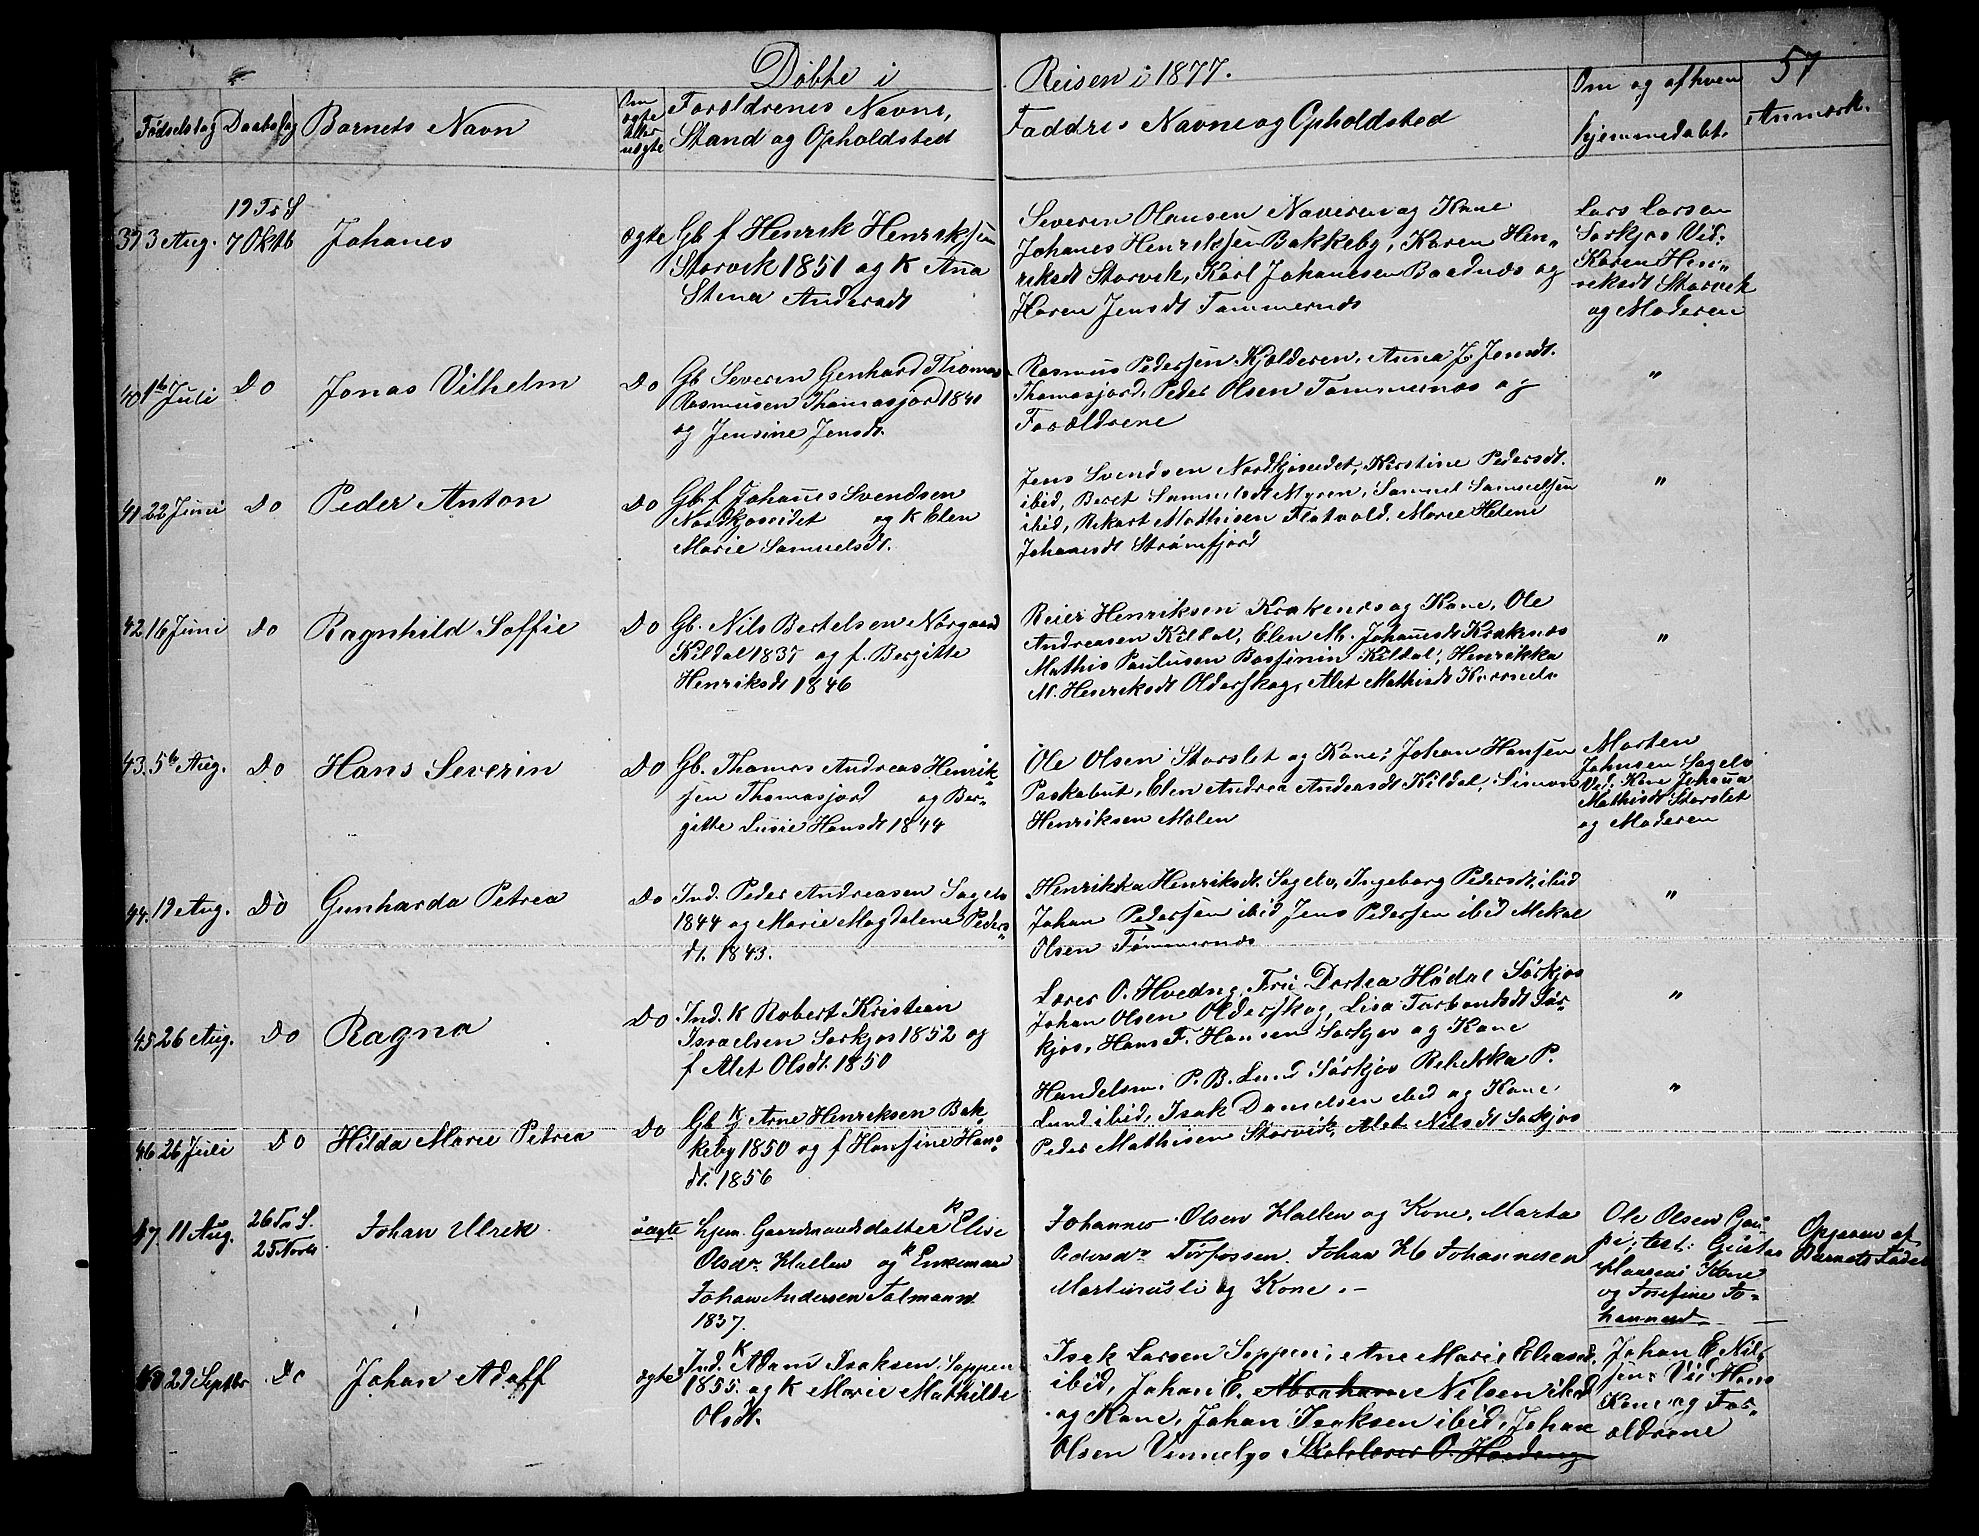 57
Döbte i Reisen i 1877.
Fødselstag Daabsdag Barnets Navn
Om ægte eller uægte
Forældrenes Navne,
Stand og Opholdsted
Faddres Navne og Opholdsted
Om og af hvem
hjemmedøbt.
Anmærk.
39 3 Aug. 19 Tr S 7 Oktb Johanes ægte
Gb f Henrik Henriksen
Storvik 1851 og K Ana
Stena Andersdt
Severin Hansen Naveren og Kone
Johanes Henriksen Bakkeby, Karen Hen-
riksdt Storvik, Karl Johanesen Baadnes og
Haren Jensdt Tømmernes
Lars Larsen
Sørkjos Vid:
Karen Hen-
riksdt Storvik
og Moderen
40 1te Juli Do Jonas Vilhelm Do
Gb Severin Genhard Thomas
Rasmusen Thomasjord 1841
og Jensine Jensdt.
Rasmus Pedersen Kjelderen, Anna J. Jensdt.
Thomasjord, Peder Olsen Tømmernes og
Forældrene
"
41 22 Juni Do Peder Anton Do
Gb. f Johanes Svendsen
Nordkjoseidet og K Elen
Marie Samuelsdt.
Jens Svendsen Nordkjoseidet, Kirstine Pedersdt.
ibid, Beret Samuelsdt Myren, Samuel Samuelsen
ibid, Rikart Mathisen Flatvold, Marie Helene
Johanesdt Strømfjord
"
42 16 Juni Do Ragnhild Soffie Do
Gb. Nils Bertelsen Norgaard
Kildal 1837 og f. Bergitte
Henriksdt 1846
Reier Henriksen Krakenes og Kone, Ole
Andreasen Kildal, Elen M. Johanesdt Krakenes
Mathis Paulusen Bassinin Kildal, Henrikka
M. Henriksdt Olderskog, Alet Mathisdt
"
43. 5te Aug. Do Hans Severin Do
Gb. Thomas Andreas Henrik-
sen Thomasjord og Ber-
gitte Lusie Hansdt 1844
Ole Olsen Storslet og Kone, Johan Hansen
Paskabut, Elen Andrea Andersdt Kildal, Simon
Henriksen Molen
Morten
Johnsen Sagelv
Vid: Kone Johana
Mathisdt Storslet
og Moderen
44. 19 Aug. Do Gunharda Petrea Do
Ind. Peder Andreasen Sagelv
1844 og Marie Magdalene Peders-
dt. 1843.
Henrikka Henriksdt. Sagelv, Ingeborg Pedersdt. ibid
Johan Pedersen ibid Jens Pedersen ibid Mekal
Olsen Tømmernes
"
45 26 Aug. Do Ragna Do
Ind. K Robert Kristian
Israelsen Sørkjos 1852 og
f Alet Olsdt. 1850
Lærer O. Hveding, Fru Dortea Hødal Sørkjos
Johan Olsen Olderskog, Lisa Torbendsdt Sør-
kjos, Hans F. Hansen Sørkjos og Kone
"
46 26 Juli Do Hilda Marie Petrea Do
Gb K Arne Henriksen Bak
keby 1850 og f Hansine Hans-
dt. 1856
Handelsm. P. B. Lund Sørkjos Rebekka P.
Lund ibid, Isak Danielsen ibid og Kone
Peder Mathisen Storvik, Alet Nilsdt Sørkjos
"
47. 11 Aug. 26 Tr S. 25 Novb Johan Ulrik uægte
hjm. Gaardmandsdatter K Elise
Olsdr Hallen og K Enkemand
Johan Andersen Talmann
1837.
Johannes Olsen Hallen og Kone, Marta
Pedersdr Torfossen. Johan H Johannesen
Martinusli og Kone. -
Ole Olsen Gau
pi; test: Gustav
Kone
og Josefine Jo-
hannesd.
Opgiven af
Barnets Fader
48 29 Septbr Do Johan Adolf ægte
Ind. K Adam Isaksen Soppen
1855. og K Marie Mathilde
Olsdt.
Isak Larsen Seppen, Ane Marie Eliasd.
ibid, Johan E. Abraham Nilsen ibid
og Kone, Johan Isaksen ibid, Johan
Olsen Vinnelys Skolelærer O. Hveding
Johan E. Nil,
sen. Vid: Hans
Kone og For-
ældrene